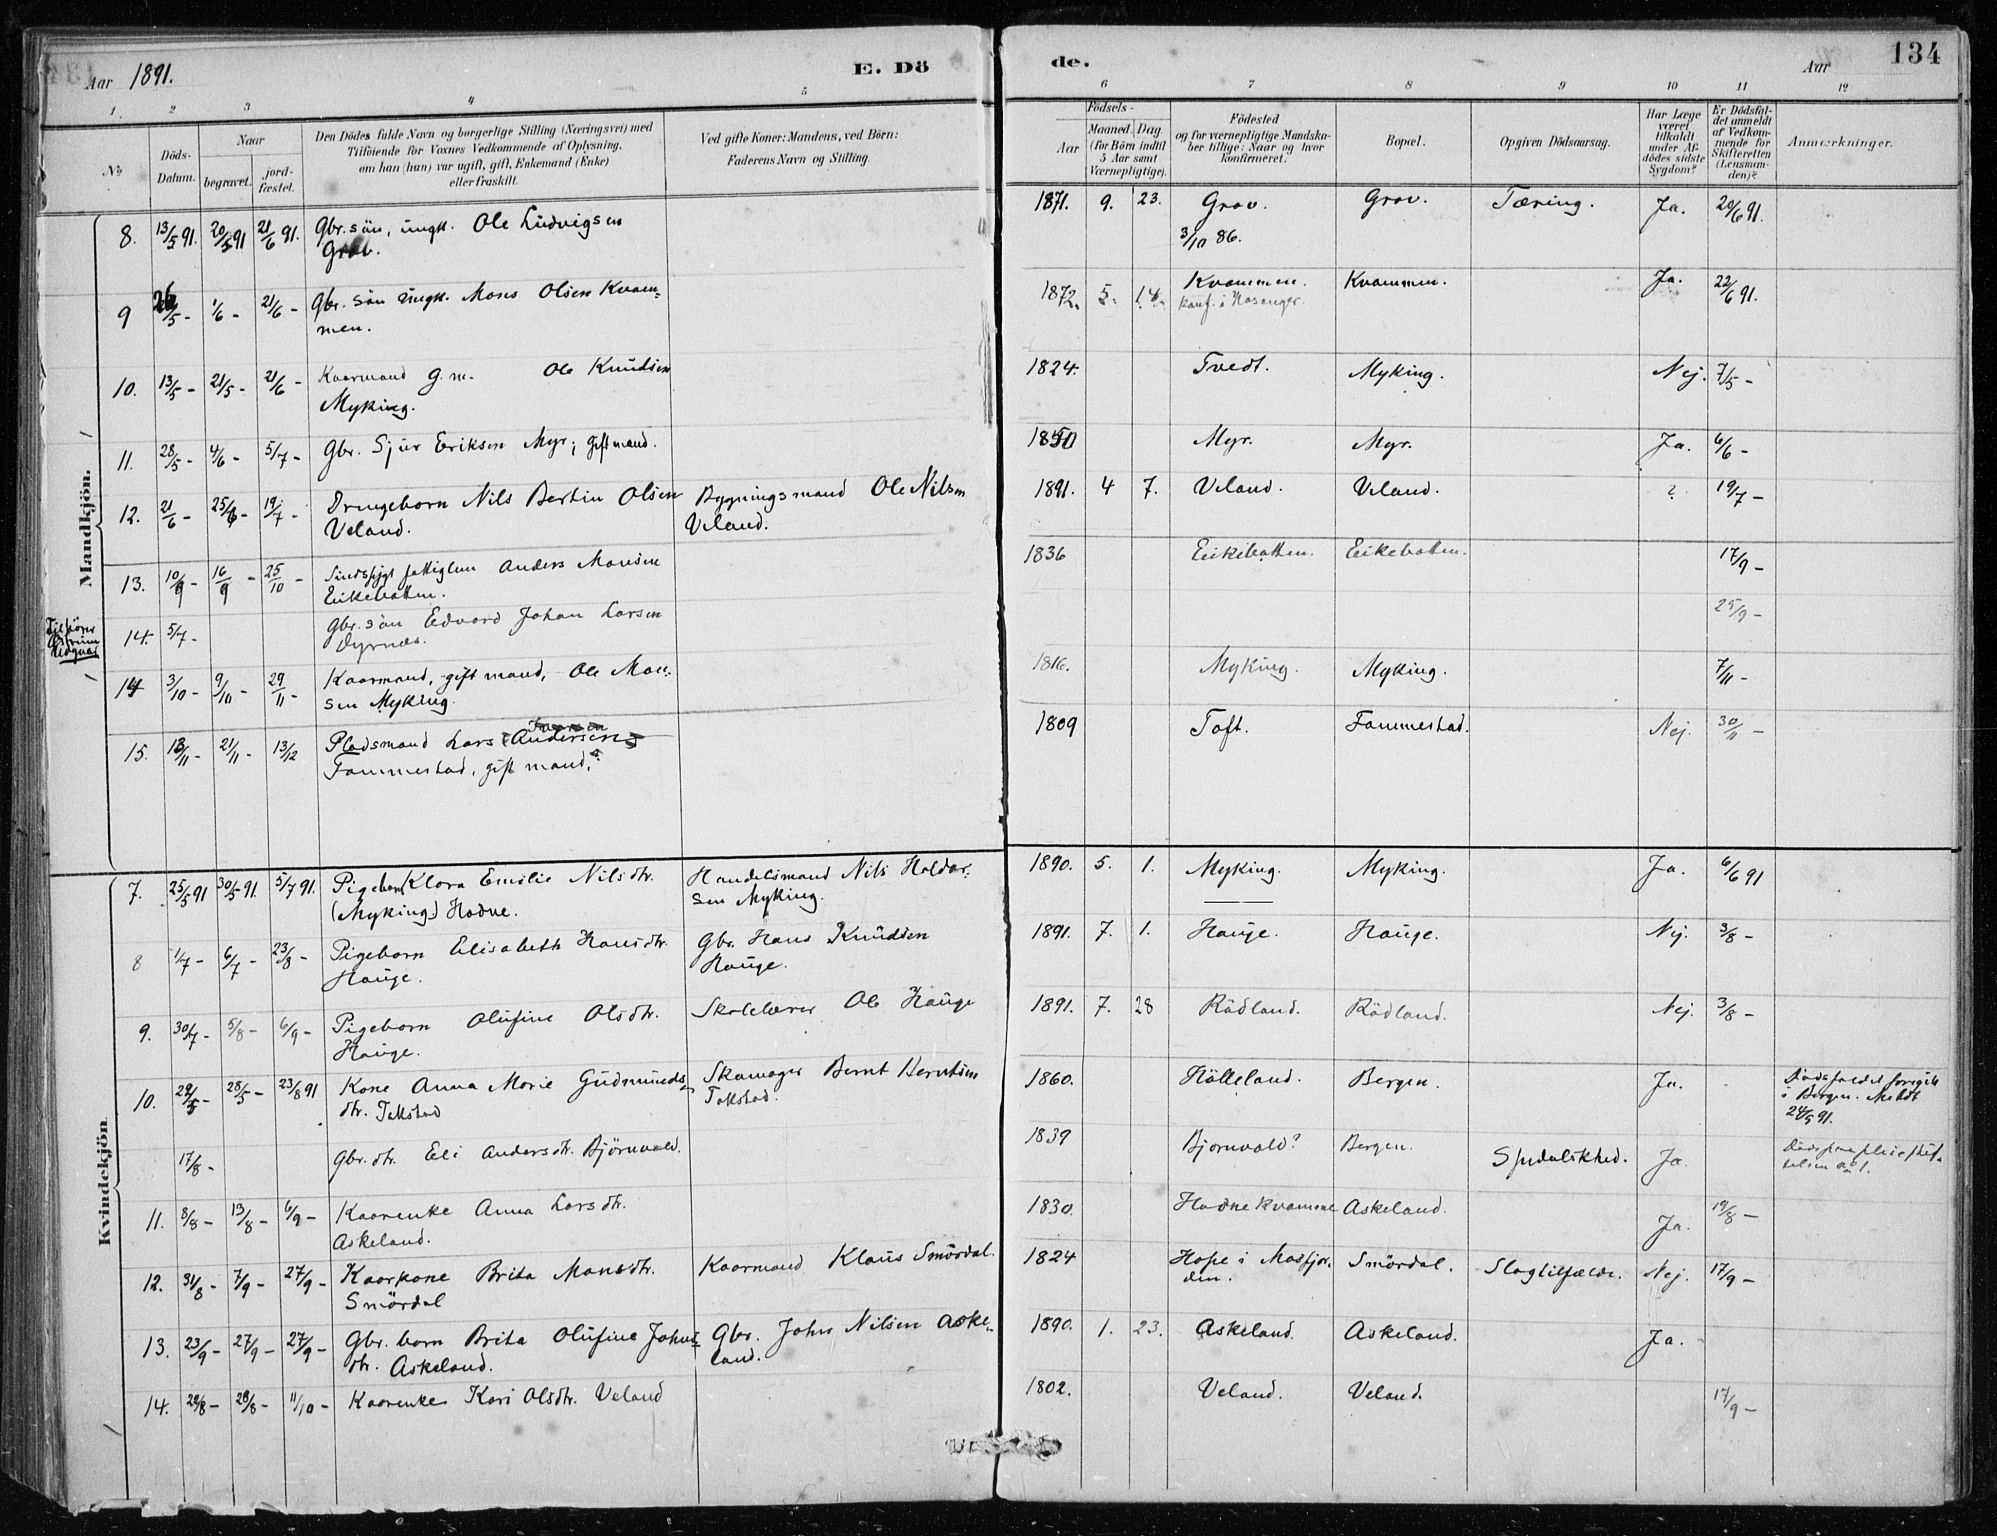 Aar 1891.
E. Döde.
Aar
134
1. 2 3 4 5 6 7 8 9 10 11 12
No
Döds-Datum.
Naar
begravet.
jord-fæstet.
Den Dödes fulde Navn og borgerlige Stilling (Næringsvei) med
Tilföiende for Voxnes Vedkommende af Oplysning,
om han (hun) var ugift, gift, Enkemand (Enke)
eller fraskilt.
Ved gifte Koner: Mandens, ved Börn:
Faderens Navn og Stilling.
Födsels-
Aar
Maaned. Dag
(for Börn indtil
5 Aar samt
Værnepligtige).
Födested
og for værnepligtige Mandska-
ber tillige: Naar og hvor
konfirmeret.
Bopæl.
Opgiven Dödsaarsag.
Har Læge
været
tilkaldt
under Af-
dödes sidste
Sygdom?
Er Dödsfal-
det anmeldt
af Vedkom-
mende for
Skifteretten
(Lensman-
den)?
Anmærkninger.
Mandkjön.
8. 13/5 91. 20/5 91 21/6 91. Gbr. sön, ungk. Ole Ludvigsen
Grov.
1871. 9. 23. Grov. Grov. Tæring. Ja. 20/6 91.
3/10 86.
9 26/5 - 1/6 - 21/6 - Gbr. sön ungk. Mons Olsen Kvam-
men.
1872. 5. 14. Kvammen. Kvammen. Ja. 22/6 91.
konf. i Hosanger.
10. 13/5 - 21/5 - 21/6 - Kaarmand g. m. Ole Knudsen
Myking.
1824. Tvedt. Myking. Nej. 7/5 -
11. 28/5 - 4/6 - 5/7 - Gbr. Sjur Eriksen Myr; gift mand.
1850 Myr. Myr. Ja. 6/6 -
12. 21/6 - 25/6 - 19/7 - Drengeborn Nils Bertin Olsen
Veland.
Bygningsmand Ole Nilsen
Veland.
1891. 4 7. Veland. Veland. ? 19/7 -
13. 10/9 - 16/9 - 25/10 - Sindssygt fattiglem Anders Monsen
Eikebotten.
1836 Eikebotten. Eikebotten. 17/9 -
Tilhörer
Östrum
Hedgnæs
14. 5/7 - Gbr. sön Edvard Johan Larsen
Dyrnæs.
25/9 -
14 3/10 - 9/10 - 29/11 - Kaarmand, gift mand, Ole Mon-
sen Myking.
1816. Myking. Myking. 7/11 -
15. 13/11 - 21/11 - 13/12 Pladsmand Lars Andersen
Fammestad, gift mand.
1809 Toft. Fammestad. Nej. 30/11 -
Kvindekjön.
7. 25/5 91 30/5 91. 5/7 91. Pigeborn Klara Emilie Nilsdtr.
(Myking) Hodne.
Handelsmand Nils Haldor-
sen Myking.
1890. 5. 1. Myking. Myking. Ja. 6/6 91
8 1/7 - 6/7 - 23/8 - Pigeborn Elisabeth Hansdtr.
Hauge.
Gbr. Hans Knudsen
Hauge.
1891. 7. 1. Hauge. Hauge. Nej. 3/8 -
9. 30/7 - 5/8 - 6/9 - Pigeborn Olufine Olsdtr.
Hauge.
Skolelærer Ole Hauge
1891. 7. 28 Rödland. Rödland. Nej. 3/8 -
10. 24/5 - 28/5 - 23/8 91 Kone Anna Marie Gudmunds-
dtr. Takstad
Skomager Bernt Berntsen
Takstad.
1860. Hölleland. Bergen. Ja. Dödsfaldet foregik
i Bergen. Meldt
24/5 91.
17/8 - Gbr. dtr. Eli Andersdtr. Björnvald.
1839 Bjornvald? Bergen. Spedalskhed. Ja.
11. 8/8 - 13/8 - 6/9 - Kaarenke Anna Larsdtr.
Askeland.
1830. Hodne Kvamme Askeland. Ja. 19/8 -
12. 31/8 - 7/9 - 27/9 - Kaarkone Brita Monsdtr.
Smördal
Kaarmand Klaus Smördal.
1824 Hope i Masfjor-
den. Smördal. Slagtilfælde. Nej. 17/9 -
13. 23/9 - 27/9 - 27/9 - Gbr. born Brita Olufine Johns-
dtr. Askeland.
Gbr. John Nilsen Aske-
land.
1890. 1. 23. Askeland. Askeland. Ja.
14. 26/8 - 28/8 - 11/10 - Kaarenke Kari Olsdtr. Veland
1802. Veland. Veland. 17/9 -